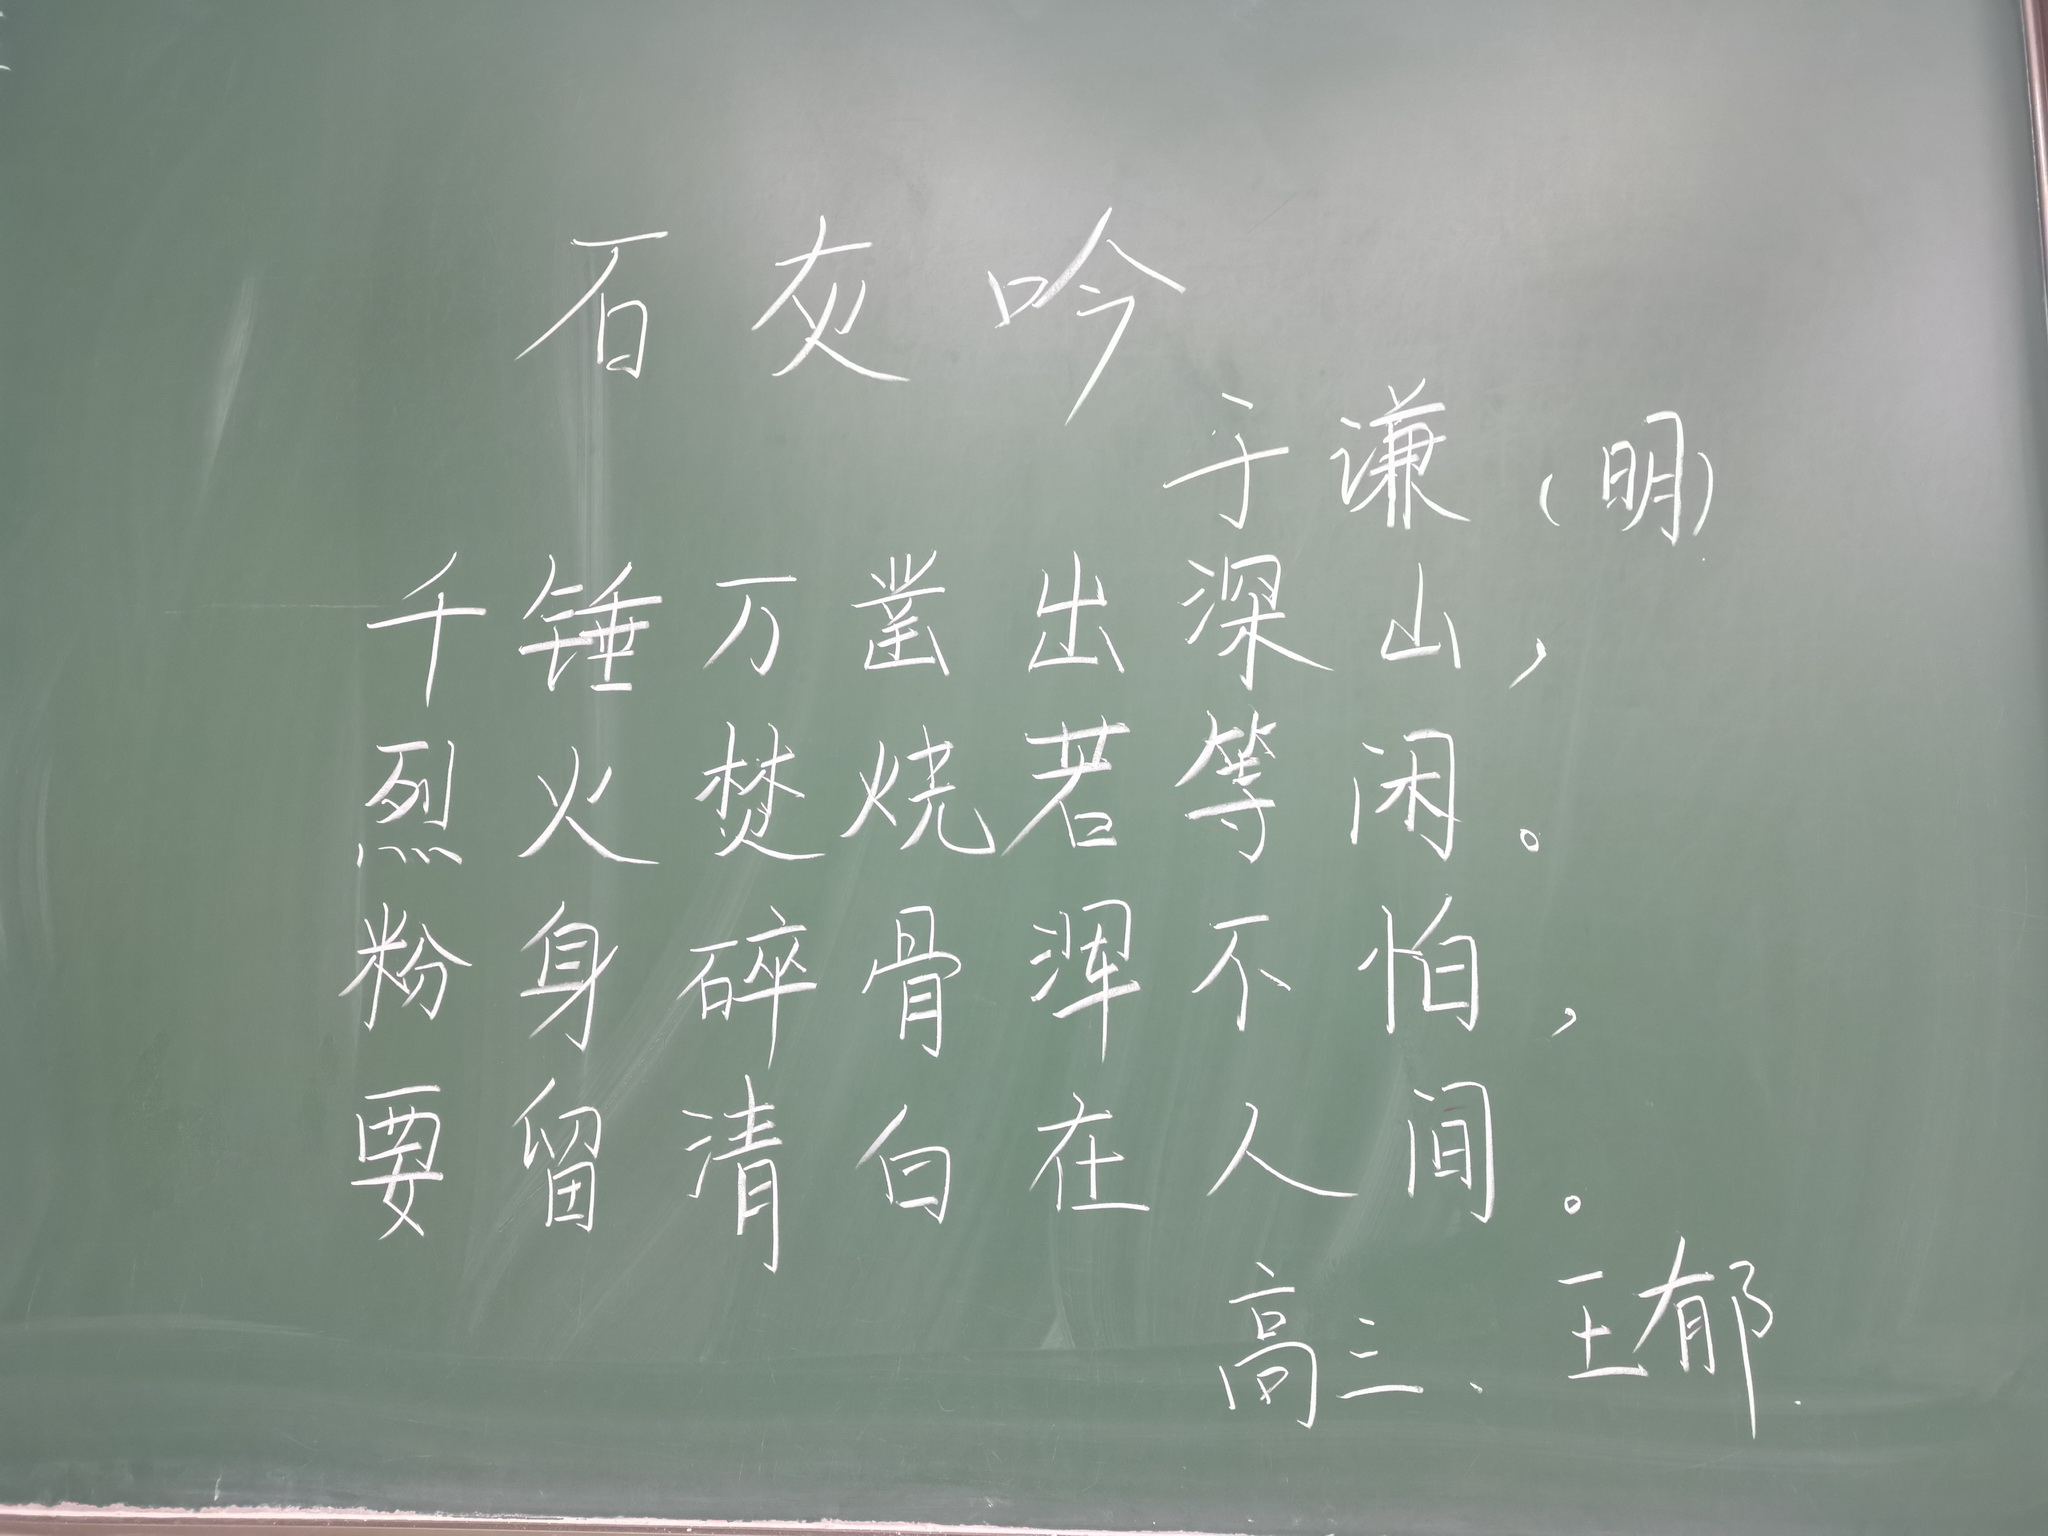 石灰吟
于谦（明）
千锤万凿出深山，
烈火焚烧若等闲。
粉身碎骨浑不怕，
要留清白在人间。
高三、王郁.